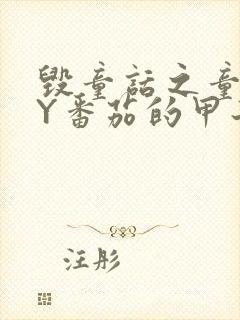 毁童话之童
Y番茄的甲
汪彤